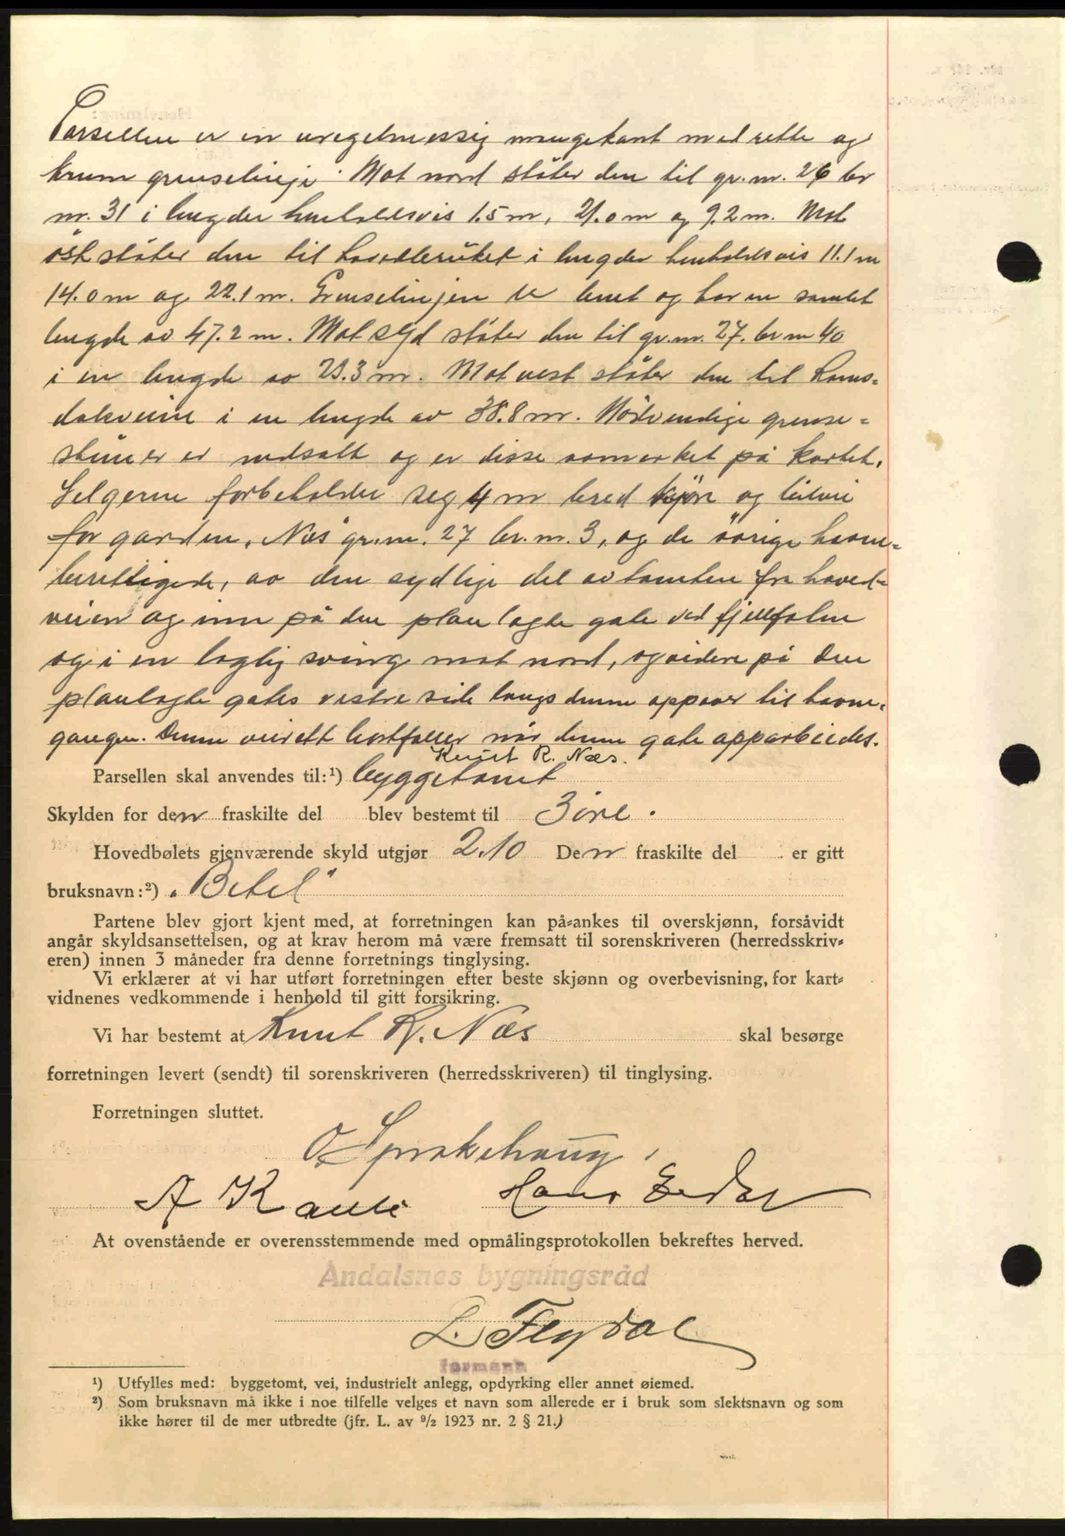 Parsellen er en uregelmessig mangekant med rette og
krum grenselinje. Mot nord støter den til gr.nr. 26 br
nr. 31 i lengder henholdsvis 1.5 m, 21.0 m og 9.2 m. Mot
øst støter den til hovedbruket i lengder henholdsvis 11.1 m
14.0 m og 22.1 m. Grenselinjen er buet og har en samlet
lengde av 47.2 m. Mot syd støter den til gr.nr. 27. br nr 40
i en lengde av 23.3 m. Mot vest støter den til Roms-
dalsveien i en lengde av 38.8 m. Nödvendige grense-
stener er nedsatt og er disse avmerket på kartet.
Selgerne forbeholder seg 4 m bred kjøre og
for garden, Næs gr.nr. 27 br.nr. 3, og de øvrige havne-
berettigede, av den sydlige del av tomten fra hoved-
veien og inn på den planlagte gate ved
og i en laglig sving mot nord, og videre på den
planlagte gates vestre side langs denne oppover til havne-
gangen. Denne veirett bortfaller når denne gate opparbeides.
Knut R. Næs.
Parsellen skal anvendes til:¹) byggetomt
Skylden for den fraskilte del blev bestemt til 3 øre.
Hovedbølets gjenværende skyld utgjør 2.10 Den fraskilte del er gitt
bruksnavn:²) „Betel"
Partene blev gjort kjent med, at forretningen kan på-ankes til overskjønn, forsåvidt
angår skyldsansettelsen, og at krav herom må være fremsatt til sorenskriveren (herredsskriv-
eren) innen 3 måneder fra denne forretnings tinglysing.
Vi erklærer at vi har utført forretningen efter beste skjønn og overbevisning, for kart-
vidnenes vedkommende i henhold til gitt forsikring.
Vi har bestemt at Knut R. Næs skal besørge
forretningen levert (sendt) til sorenskriveren (herredsskriveren) til tinglysing.
Forretningen sluttet.
O. Sprakehaug
A Kavli
At ovenstående er overensstemmende med opmålingsprotokollen bekreftes herved.
Åndalsnes bygningsråd
L. Flydal
formann
¹) Utfylles med: byggetomt, vei, industrielt anlegg, opdyrking eller annet øiemed.
²) Som bruksnavn må ikke i noe tilfelle velges et navn som allerede er i bruk som slektsnavn og som
ikke hører til de mer utbredte (jfr. L. av 9/2 1923 nr. 2 § 21.)